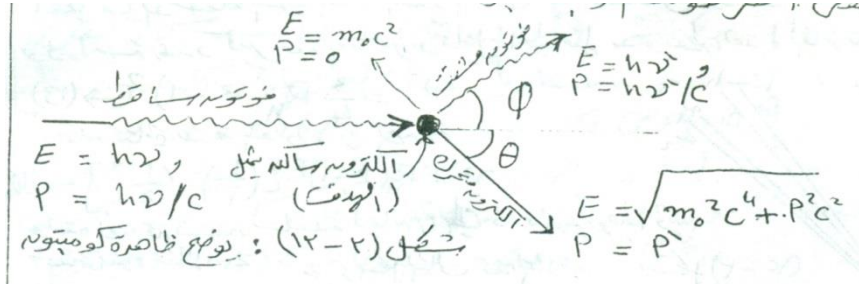 E = m₀c²
P = 0
فوتون مشتت
E = hν'
P = hν'/c
فوتون ساقط
ϕ
θ
E = hν ,
P = hν/c
الكترون ساكن يمثل
(الهدف)
الكترون متحرك
E = √m₀²c⁴ + P²c²
P = P'
شكل (٢-١٢) : يوضح ظاهرة كومبتون